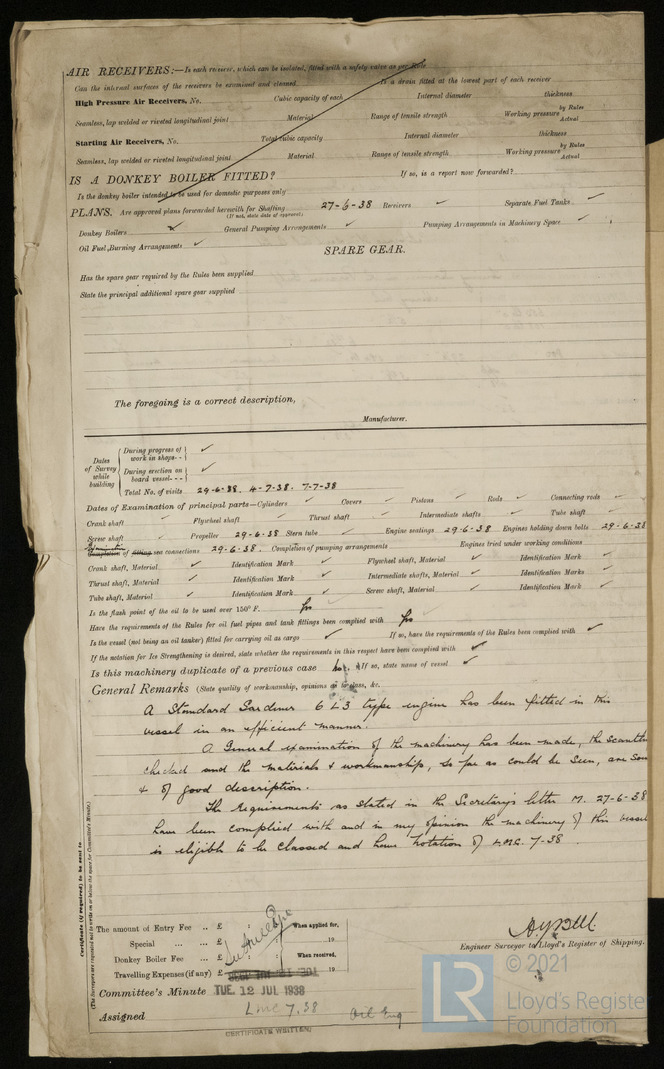 AIR RECEIVERS:—Is each receiver, which can be isolated, fitted with a safety valve as per Rule
Can the internal surfaces of the receivers be examined and cleaned Is a drain fitted at the lowest part of each receiver
High Pressure Air Receivers, No. Cubic capacity of each Internal diameter thickness
Seamless, lap welded or riveted longitudinal joint Material Range of tensile strength Working pressure by Rules Actual
Starting Air Receivers, No. Total cubic capacity Internal diameter thickness
Seamless, lap welded or riveted longitudinal joint Material Range of tensile strength Working pressure by Rules Actual
IS A DONKEY BOILER FITTED? If so, is a report now forwarded?
Is the donkey boiler intended to be used for domestic purposes only
PLANS. Are approved plans forwarded herewith for Shafting 27-6-38 Receivers ✓ Separate Fuel Tanks ✓
(If not, state date of approval)
Donkey Boilers ✓ General Pumping Arrangements ✓ Pumping Arrangements in Machinery Space ✓
Oil Fuel Burning Arrangements ✓
SPARE GEAR.
Has the spare gear required by the Rules been supplied
State the principal additional spare gear supplied
The foregoing is a correct description,
Manufacturer.
Dates of Survey while building
During progress of work in shops - - ✓
During erection on board vessel - - - ✓
Total No. of visits 29-6-38. 4-7-38. 7-7-38
Dates of Examination of principal parts—Cylinders ✓ Covers ✓ Pistons ✓ Rods ✓ Connecting rods ✓
Crank shaft ✓ Flywheel shaft ✓ Thrust shaft ✓ Intermediate shafts ✓ Tube shaft ✓
Screw shaft ✓ Propeller 29-6-38 Stern tube ✓ Engine seatings 29-6-38 Engines holding down bolts 29-6-38
Completion of fitting sea connections 29-6-38. Completion of pumping arrangements Engines tried under working conditions
Crank shaft, Material ✓ Identification Mark ✓ Flywheel shaft, Material ✓ Identification Mark ✓
Thrust shaft, Material ✓ Identification Mark ✓ Intermediate shafts, Material ✓ Identification Marks ✓
Tube shaft, Material ✓ Identification Mark ✓ Screw shaft, Material ✓ Identification Mark ✓
Is the flash point of the oil to be used over 150° F. Yes
Have the requirements of the Rules for oil fuel pipes and tank fittings been complied with Yes
Is the vessel (not being an oil tanker) fitted for carrying oil as cargo ✓ If so, have the requirements of the Rules been complied with ✓
If the notation for Ice Strengthening is desired, state whether the requirements in this respect have been complied with ✓
Is this machinery duplicate of a previous case No. If so, state name of vessel ✓
General Remarks (State quality of workmanship, opinions as to class, &c.
A Standard Gardener 6 L3 type engine has been fitted in this
vessel in an efficient manner.
A General examination of the machinery has been made, the scantlin
checked and the materials & workmanship, so far as could be seen, are soun
& of good description.
The requirements as stated in the Secretary's letter M. 27-6-38
have been complied with and in my opinion the machinery of this vessel
is eligible to be classed and have notation of L.M.C. 7-38.
Certificate (if required) to be sent to
(The Surveyors are requested not to write on or below the space for Committee's Minute.)
The amount of Entry Fee .. £ : : When applied for,
Special ... ... £ : : 19
Donkey Boiler Fee ... £ : : When received,
Travelling Expenses (if any) £ : : 19
A J Bell
Engineer Surveyor to Lloyd's Register of Shipping.
Committee's Minute TUE. 12 JUL 1938
Assigned LMC 7.38
Oil Eng
CERTIFICATE WRITTEN
LR
© 2021
Lloyd's Register
Foundation